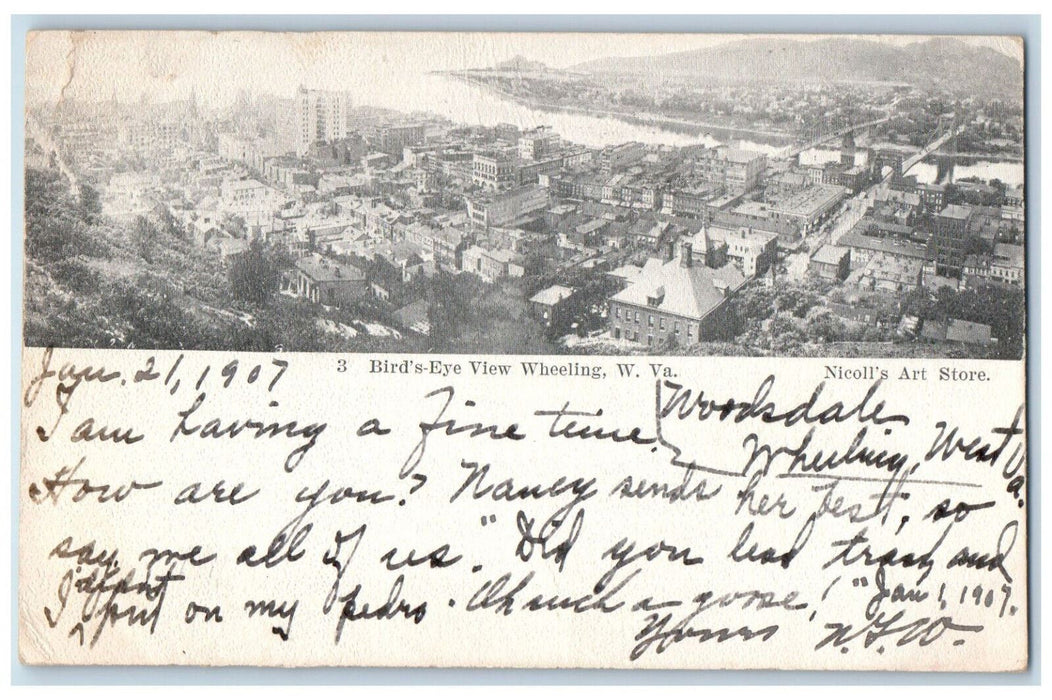 3 Bird's-Eye View Wheeling, W. Va.
Nicoll's Art Store.
Jan. 21, 1907
Woodsdale
Wheeling, West Va.
I am having a fine time.
How are you? Nancy sends her best, so
say me all of us. "Did you lead tray and
I didn't put on my pedro. Oh such a goose!" Jan 1, 1907.
Yours N.F.W.